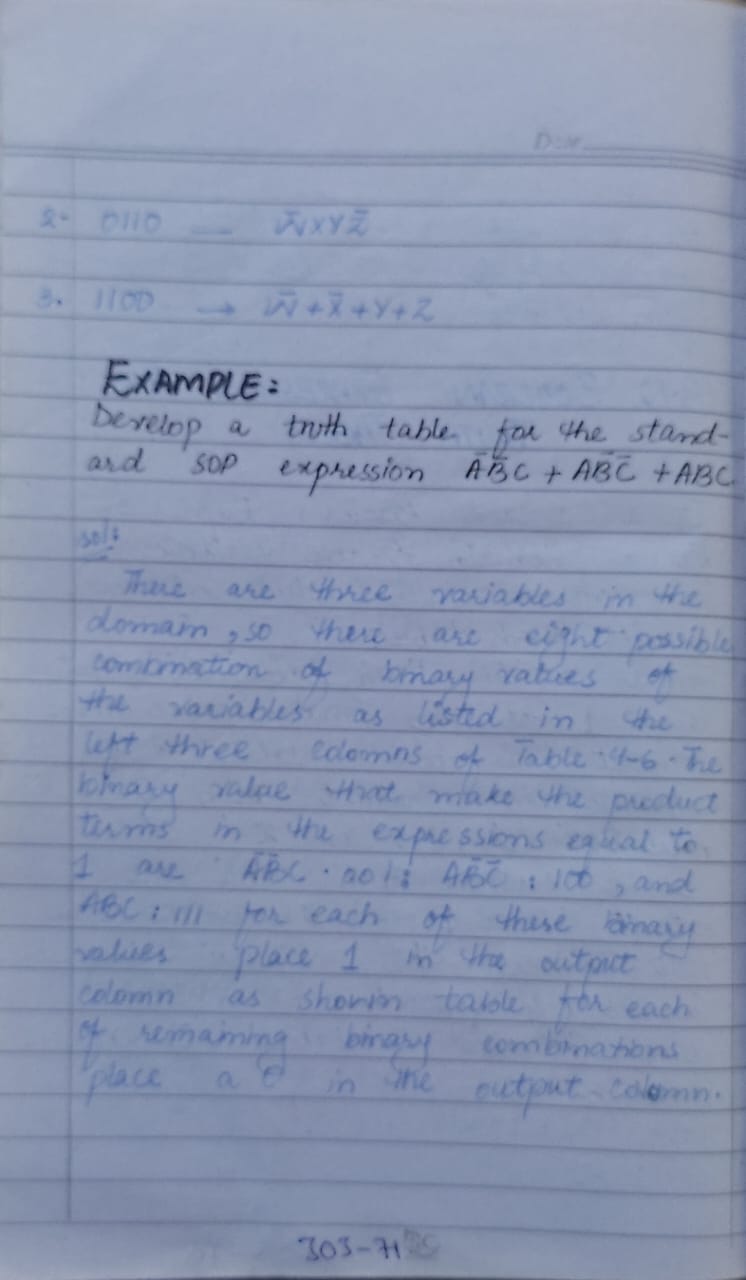 Date
2. 0110 — W̄XYZ̄
3. 1100 → W̄+X̄+Y+Z
EXAMPLE:
Develop a truth table for the stand-
ard SOP expression ĀB̄C + AB̄C̄ + ABC
sol:
There are three variables in the
domain, so there are eight possible
combination of binary values of
the variables as listed in the
left three colomns of Table 4-6. The
binary value that make the product
terms in the expressions equal to
1 are ĀB̄C. 001: AB̄C̄ : 100, and
ABC: 111 for each of these binary
values place 1 in the output
colomn as shown table for each
of remaining binary combinations
place a 0 in the output colomn.
303-71